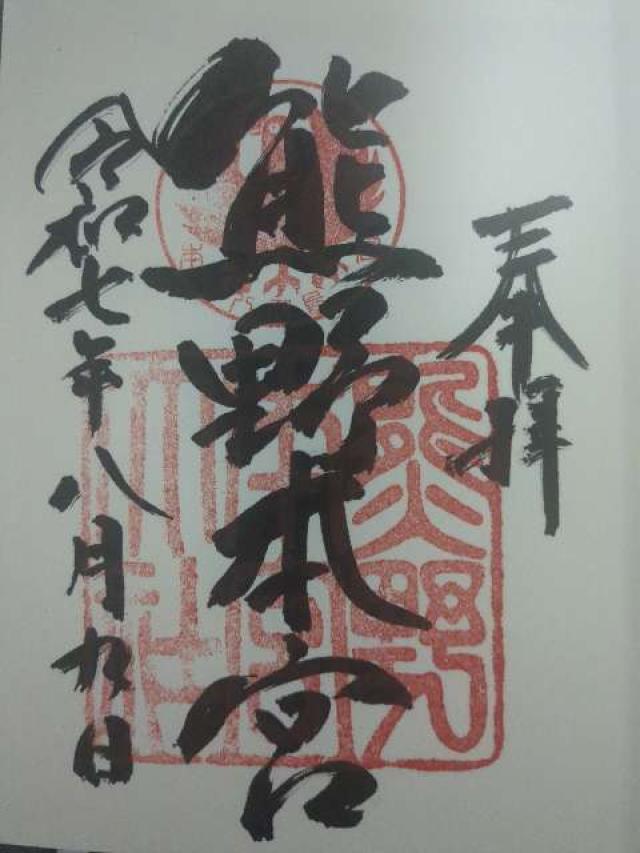 奉拝
熊野本宮
令和七年八月九日